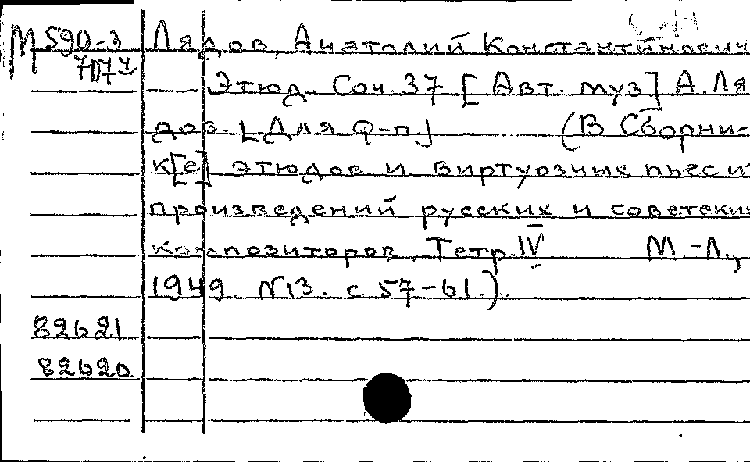 М 590-3 Лядов, Анатолий Константинович
Этюд. Соч. 37 [Авт. муз] А. Ля
дов. [Для ф-п] (В Сборни-
к[е] этюдов и виртуозных пьес из
произведений русских и советских
композиторов. Тетр IV М.-Л.,
1949. N13. с 57-61.).
82621
82620